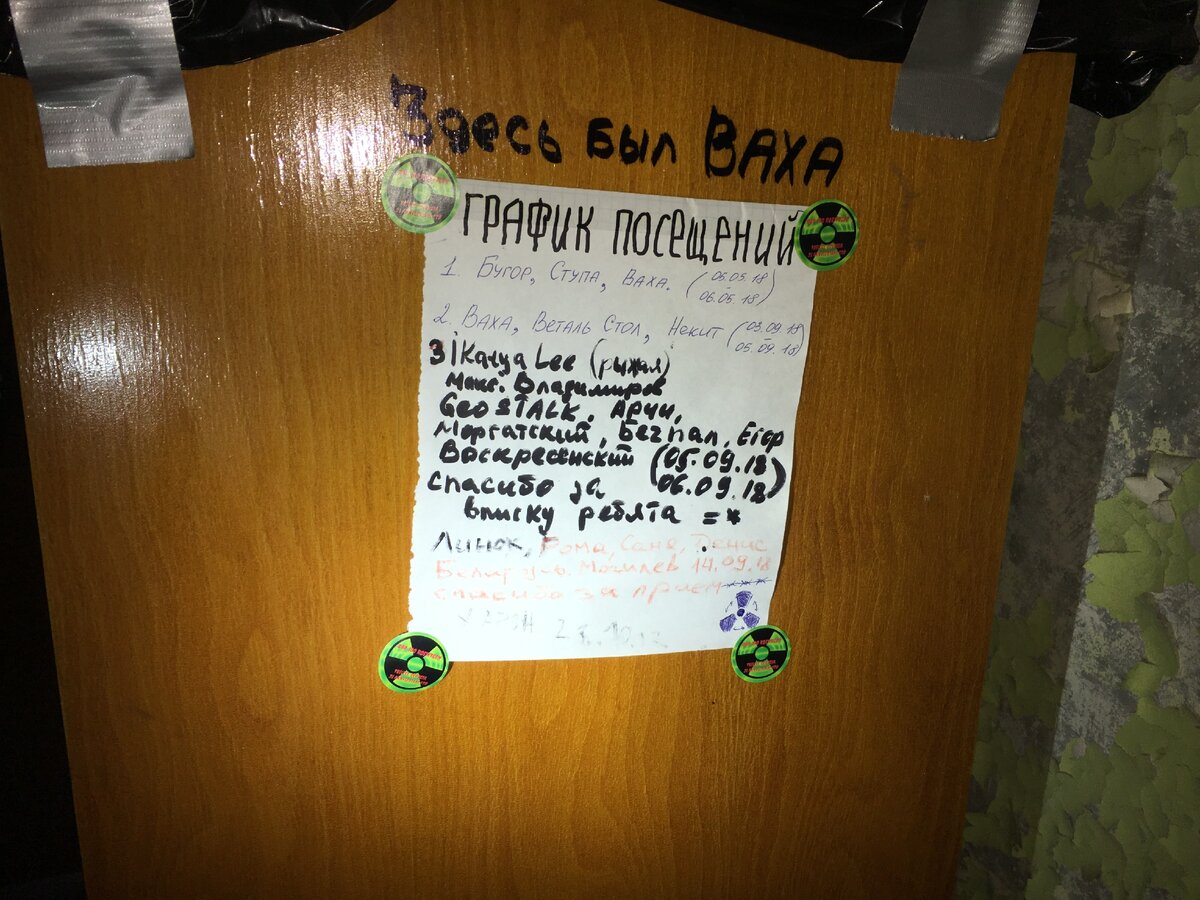 Здесь был ВАХА
ГРАФИК ПОСЕЩЕНИЙ
1. Бугор, Ступа, Ваха. (05.05.18 - 06.05.18)
2. Ваха, Веталь Стол, Некит (03.09.18 - 05.09.18)
3 Katya Lee (рыжая)
Макс. Владимиров
GeoSTALK, Арчи,
Моргатский, Бегпал, Егор
Воскресенский (05.09.18
06.09.18)
спасибо за
вписку ребята =*
Рома, Саня, Денис
Могилев 14.09.18
спасибо за прием